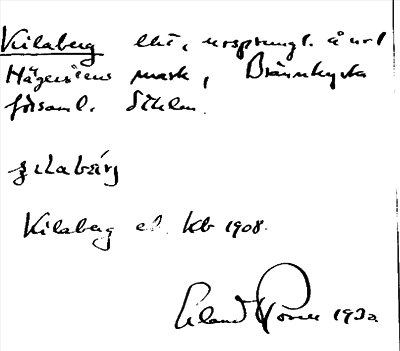 Kilaberg lht, ursprungl. å url
Hägerstens mark, Brännkyrka
församl. Sthlm.
Kilaberg el. Kb 1908.
Erland Rosell 1932